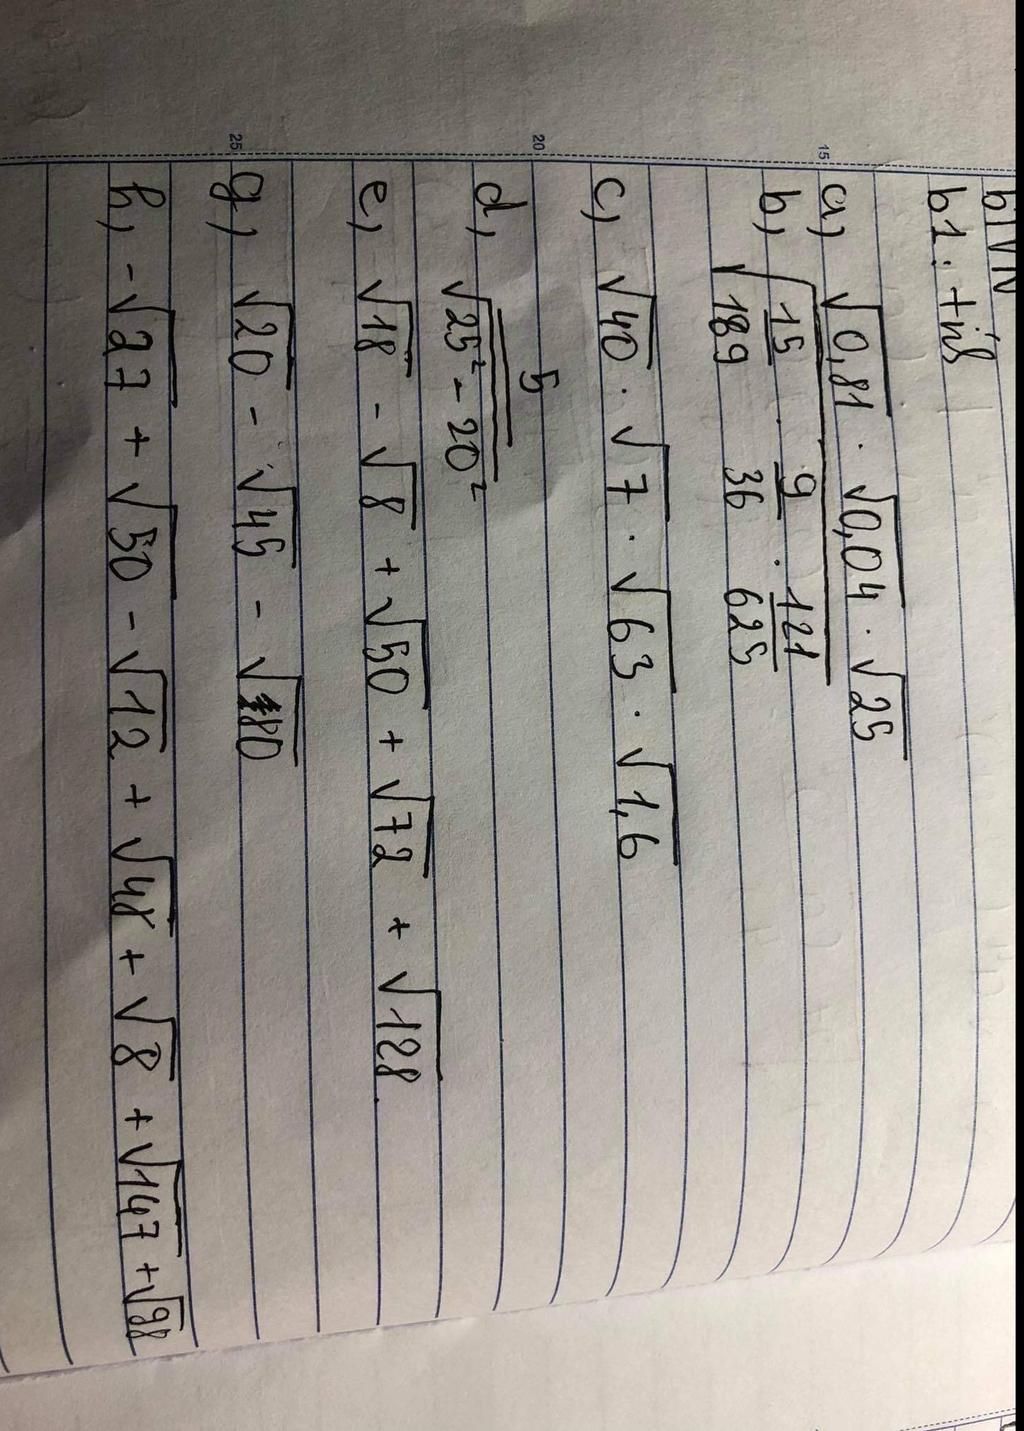 BTVN
b1: tính
15
a) √0,81 . √0,04 . √25
b) √(15/189 . 9/36 . 121/625)
c) √40 . √7 . √63 . √1,6
20
5
d) √(25² - 20²)
e) √18 - √8 + √50 + √72 + √128
25
g) √20 - √45 - √180
h) -√27 + √50 - √12 + √48 + √8 + √147 + √98